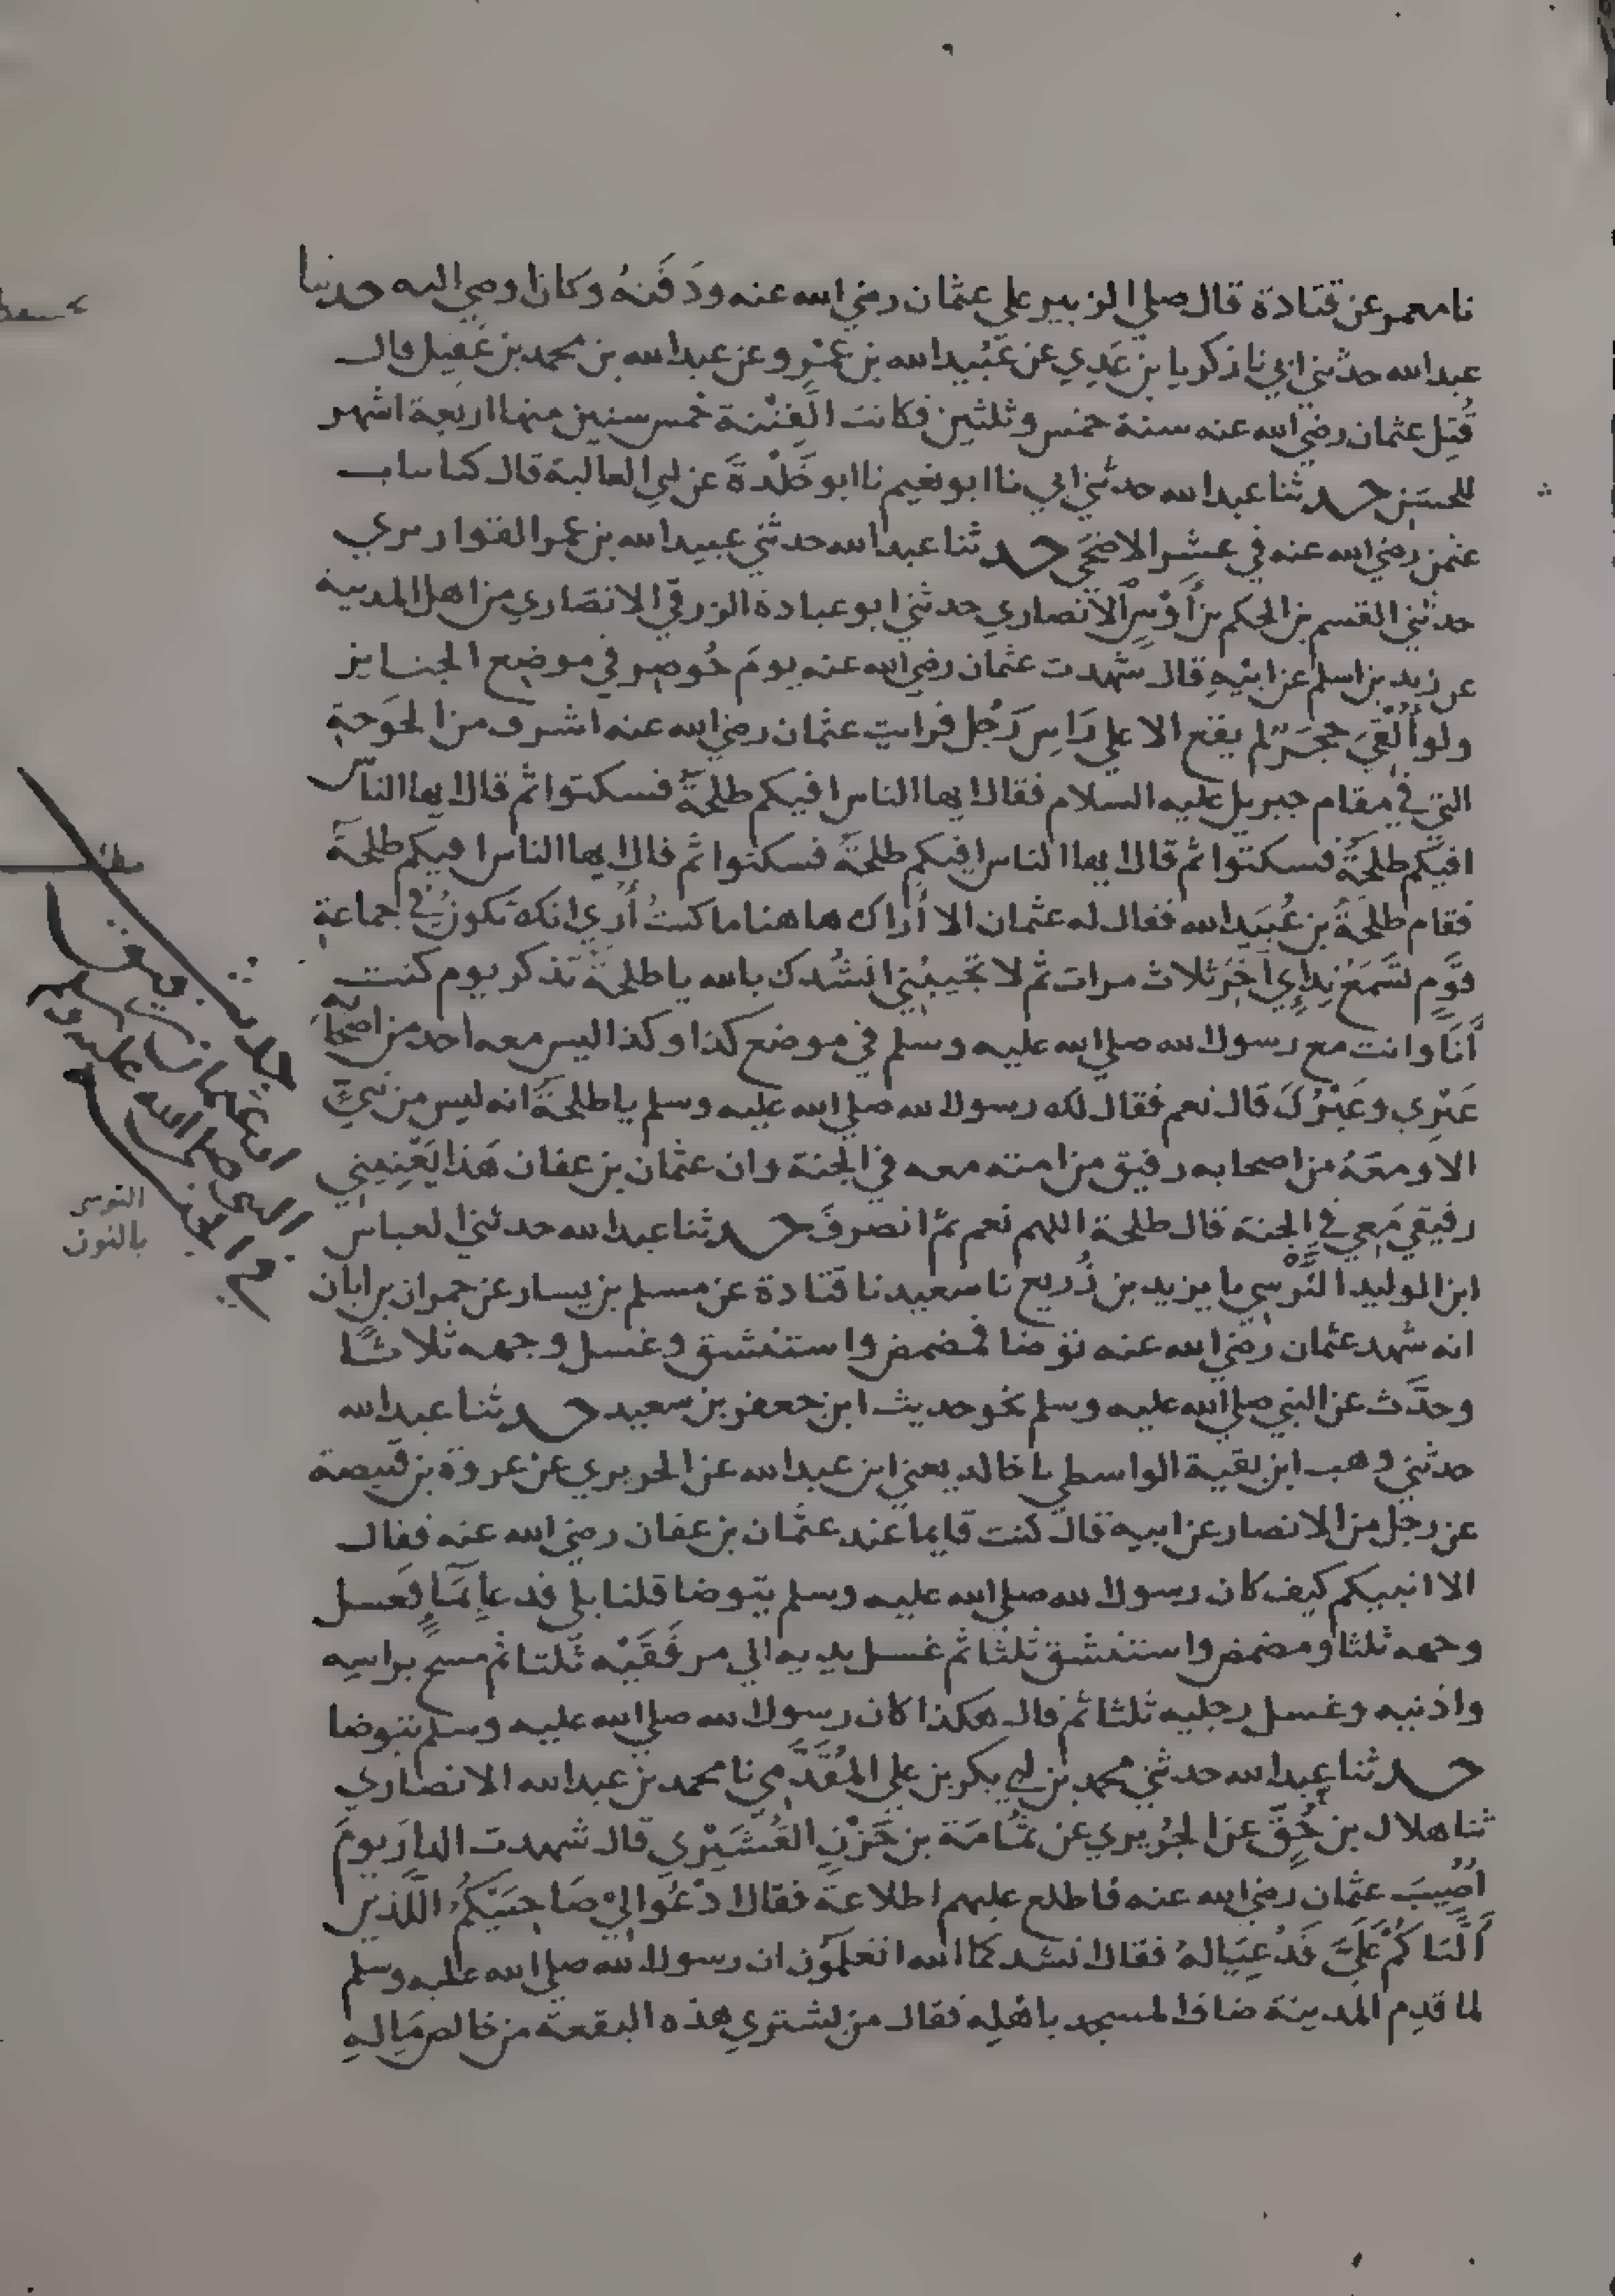 نا معمر عن قتادة قال صلى الزبير على عثمان رضي الله عنه ودَفَنهُ وكان اوصي اليه حدثنا
عبد الله حدثني ابي نا زكريا بن عَدِي عن عُبَيد الله بن عَمْرٍو عن عبد الله بن محمد بن عَقِيل قال
قُتِل عثمان رضي الله عنه سنة خمس وثلثين فكانت الفِتْنة خمس سنين منها اربعة اشهر
للحسَن حدثنا عبد الله حدثني ابي نا ابو نعيم نا ابو خَلْدَةَ عن ابي العالية قال كنا بباب
عثمن رضي الله عنه في عشر الاضحَي حدثنا عبد الله حدثني عبيد الله بن عمر القواريري
حدثني القسم بن الحكم بن أَوْسٍ الانصاري حدثني ابو عبادة الزرقي الانصاري من اهل المدينة
عن زيد بن اسلم عن ابيهِ قال شهدت عثمان رضي الله عنه يومَ حُوصِر في موضع الجنايز
ولو أُلْقِيَ حجَرٌ لم يقع الا علي رَاسِ رَجُل فرايت عثمان رضي الله عنه اشرف من الخوخةِ
التي في مقام جبريل عليه السلام فقال ايها الناس افيكم طلحةُ فسكتوا ثم قال ايها الناس
افيكم طلحةُ فسكتوا ثم قال ايها الناس افيكم طلحةُ فسكتوا ثم قال ايها الناس افيكم طلحةُ
فقام طلحةُ بن عُبَيد الله فقال له عثمان الا أَرَاك هاهنا ما كنتُ أُرَي انك تكونُ في جماعةِ
قومٍ تَسْمَعُ نِدايٍ آخِرَ ثلاث مرات ثم لا تُجيبُني انشُدك بالله يا طلحةُ تذكر يوم كنت
أنَا وانت مع رسول الله صلي الله عليه وسلم في موضع كذا وكذا ليس معه احد من اصحابه
غَيْرِي وغَيْرُكَ قال نعم فقال لك رسول الله صلي الله عليه وسلم يا طلحةُ انه ليس من نَبيٍّ
الا ومعَهُ من اصحابه رفيق من امته معه في الجنة وان عثمان بن عفان هَذَا يَعْنِيني
رفيقي مَعِي في الجنة قال طلحة اللهم نعم ثم انصرفَ حدثنا عبد الله حدثني العباس
ابن الوليد النَّرْسِي نا يزيد بن زُريع نا سعيد نا قتادة عن مسلم بن يسار عن حمران بن ابان
انه شهد عثمان رضي الله عنه توضا فمضمض واستنشق وغسل وجهه ثلاثًا
وحدَّث عن النبي صلي الله عليه وسلم نحو حديث ابن جعفر بن سعيد حدثنا عبد الله
حدثني وهب ابن بقية الواسطي نا خالد يعني ابن عبد الله عن الجريري عن عروة بن قبيصة
عن رجل من الانصار عن ابيه قال كنت قايما عند عثمان بن عفان رضي الله عنه فقال
الا انبيكم كيف كان رسول الله صلي الله عليه وسلم يتوضا قلنا بلي فدعا بمآءٍ فغسل
وجهه ثلثا ومضمض واستنشق ثلثا ثم غسل يديه الي مرفَقَيْه ثلثا ثم مسح براسه
واذنيه وغسل رجليه ثلثا ثم قال هكذا كان رسول الله صلي الله عليه وسلم يتوضا
حدثنا عبد الله حدثني محمد بن ابي بكر بن علي المُقَدَّمِي نا محمد بن عبد الله الانصاري
ثنا هلال بن حِقٍّ عن الجُريري عن ثُمَامَة بن حَزْنٍ القُشَيْرِي قال شهدت الدارَ يومَ
اُصِيبَ عثمان رضي الله عنه فاطلع عليهم اطلاعةً فقال ادْعُوا لِيْ صَاحِبَيْكُمُ اللَّذين
أَلَّبَاكُمْ عَلَيَّ فَدُعِيَا لهُ فقال انشدكما الله اتعلمون ان رسول الله صلي الله عليه وسلم
لما قدِم المدينة ضاق المسجد باهْلِه فقال من يشتري هذه البقعة من خالص مَالِهِ
النرسي
بالنون